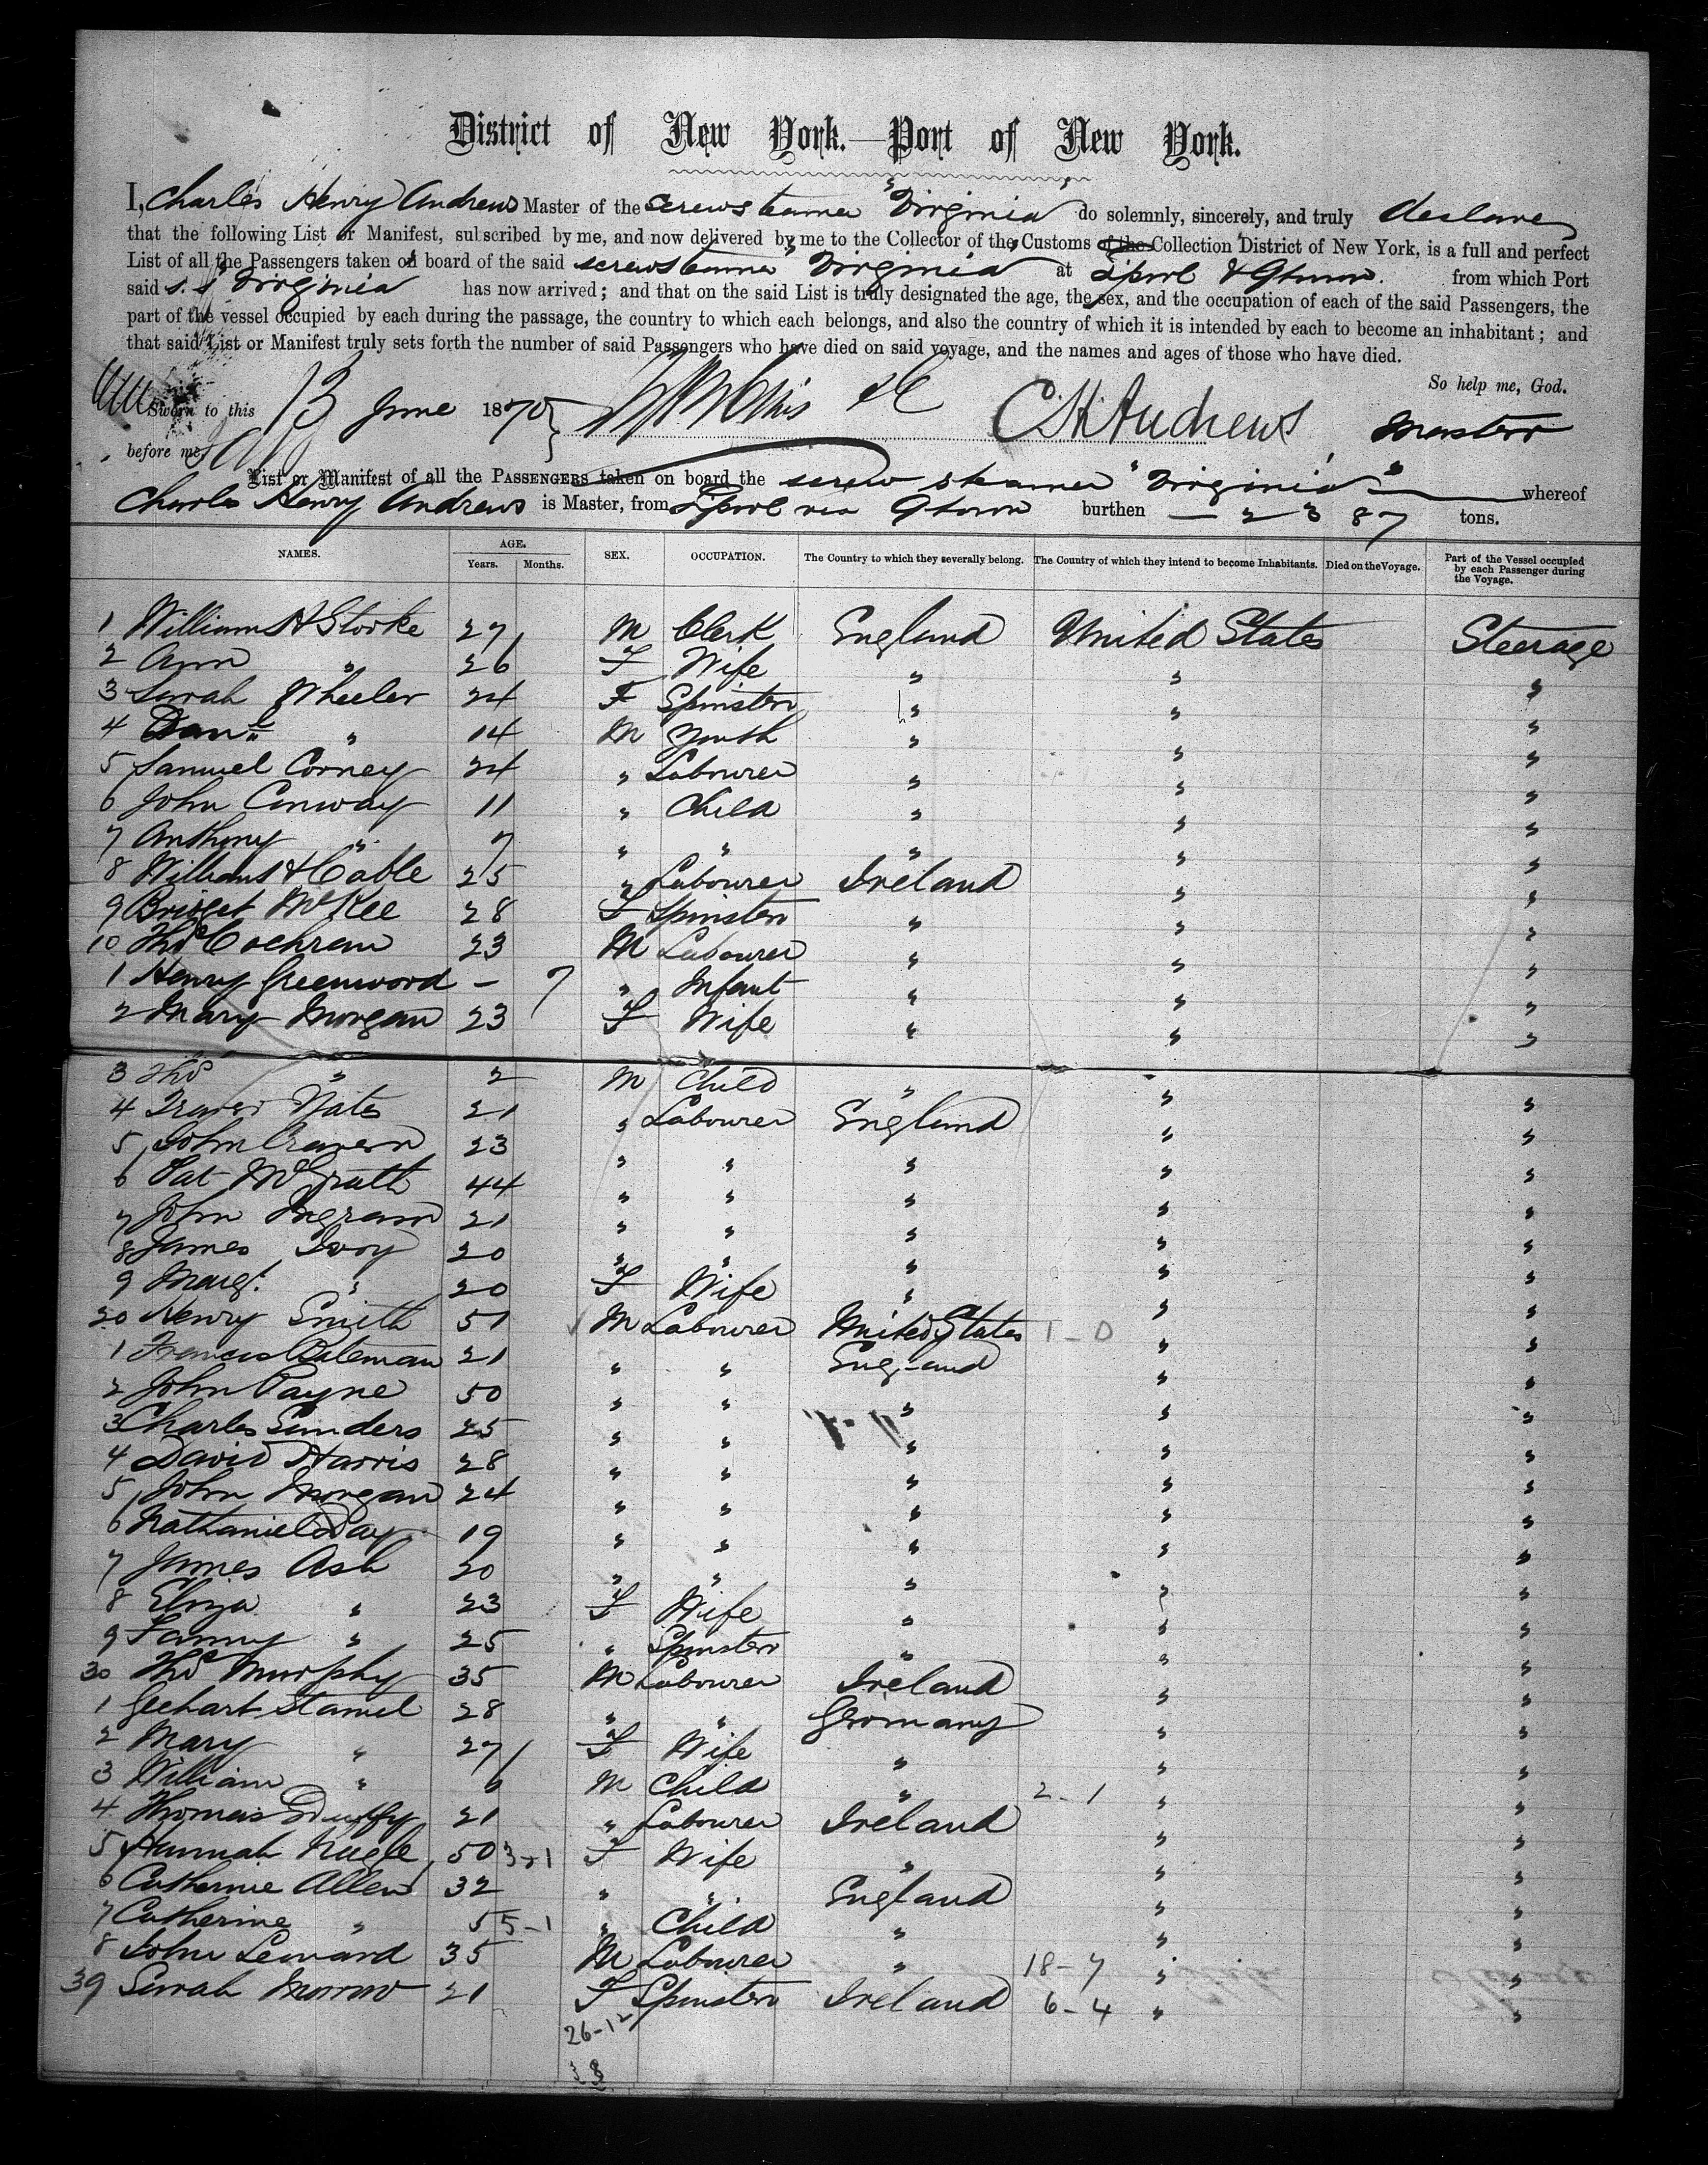 District of New York.—Port of New York.
I, Charles Henry Andrews Master of the Screw Steamer "Virginia" do solemnly, sincerely, and truly declare
that the following List or Manifest, subscribed by me, and now delivered by me to the Collector of the Customs of the Collection District of New York, is a full and perfect
List of all the Passengers taken on board of the said screw steamer "Virginia" at L'pool & Qtown. from which Port
said s.s. Virginia has now arrived; and that on the said List is truly designated the age, the sex, and the occupation of each of the said Passengers, the
part of the vessel occupied by each during the passage, the country to which each belongs, and also the country of which it is intended by each to become an inhabitant; and
that said List or Manifest truly sets forth the number of said Passengers who have died on said voyage, and the names and ages of those who have died.
So help me, God.
Sworn to this 13 June 1870 C. H. Andrews Master
before me,
List or Manifest of all the PASSENGERS taken on board the screw steamer "Virginia" whereof
Charles Henry Andrews is Master, from L'pool via Qtown burthen — 2387 tons.
NAMES. AGE. SEX. OCCUPATION. The Country to which they severally belong. The Country of which they intend to become Inhabitants. Died on the Voyage. Part of the Vessel occupied by each Passenger during the Voyage.
Years. Months.
1 William H Storke 27 M Clerk England United States Steerage
2 Ann " 26 F Wife " " "
3 Sarah Wheeler 24 F Spinster " " "
4 Danl " 14 M Youth " " "
5 Samuel Corney 24 " Labourer " " "
6 John Conway 11 " Child " " "
7 Anthony " 7 " " " " "
8 William H Cable 25 " Labourer Ireland " "
9 Bridget McKee 28 F Spinster " " "
10 Thos Cochran 23 M Labourer " " "
1 Henry Greenwood – 7 " Infant " " "
2 Mary Morgan 23 F Wife " " "
3 Thos " 2 M Child " " "
4 Yates 21 " Labourer England " "
5 John Craven 23 " " " " "
6 Pat McGrath 44 " " " " "
7 John Ingram 21 " " " " "
8 James Ivory 20 " " " " "
9 Margt. " 20 F Wife " " "
20 Henry Smith 51 M Labourer United States 1–0 " "
1 Francis Bateman 21 " " England " "
2 John Payne 50 " " " " "
3 Charles Sanders 25 " " " " "
4 David Harris 28 " " " " "
5 John Morgan 24 " " " " "
6 Nathaniel Day 19 " " " " "
7 James Ash 20 " " " " "
8 Eliza " 23 F Wife " " "
9 Fanny " 25 " Spinster " " "
30 Thos Murphy 35 M Labourer Ireland " "
1 Gechart Stamel 28 " " Germany " "
2 Mary " 27 F Wife " " "
3 William " 6 M Child " 2–1 " "
4 Thomas Duffy 21 " Labourer Ireland " "
5 Hannah Nagle 50 3–1 F Wife " " "
6 Catherine Allen 32 " " England " "
7 Catherine " 5 5–1 " Child " " "
8 John Leonard 35 M Labourer " 18–7 " "
39 Sarah Morrow 21 F Spinster Ireland 6–4 " "
26–12
38